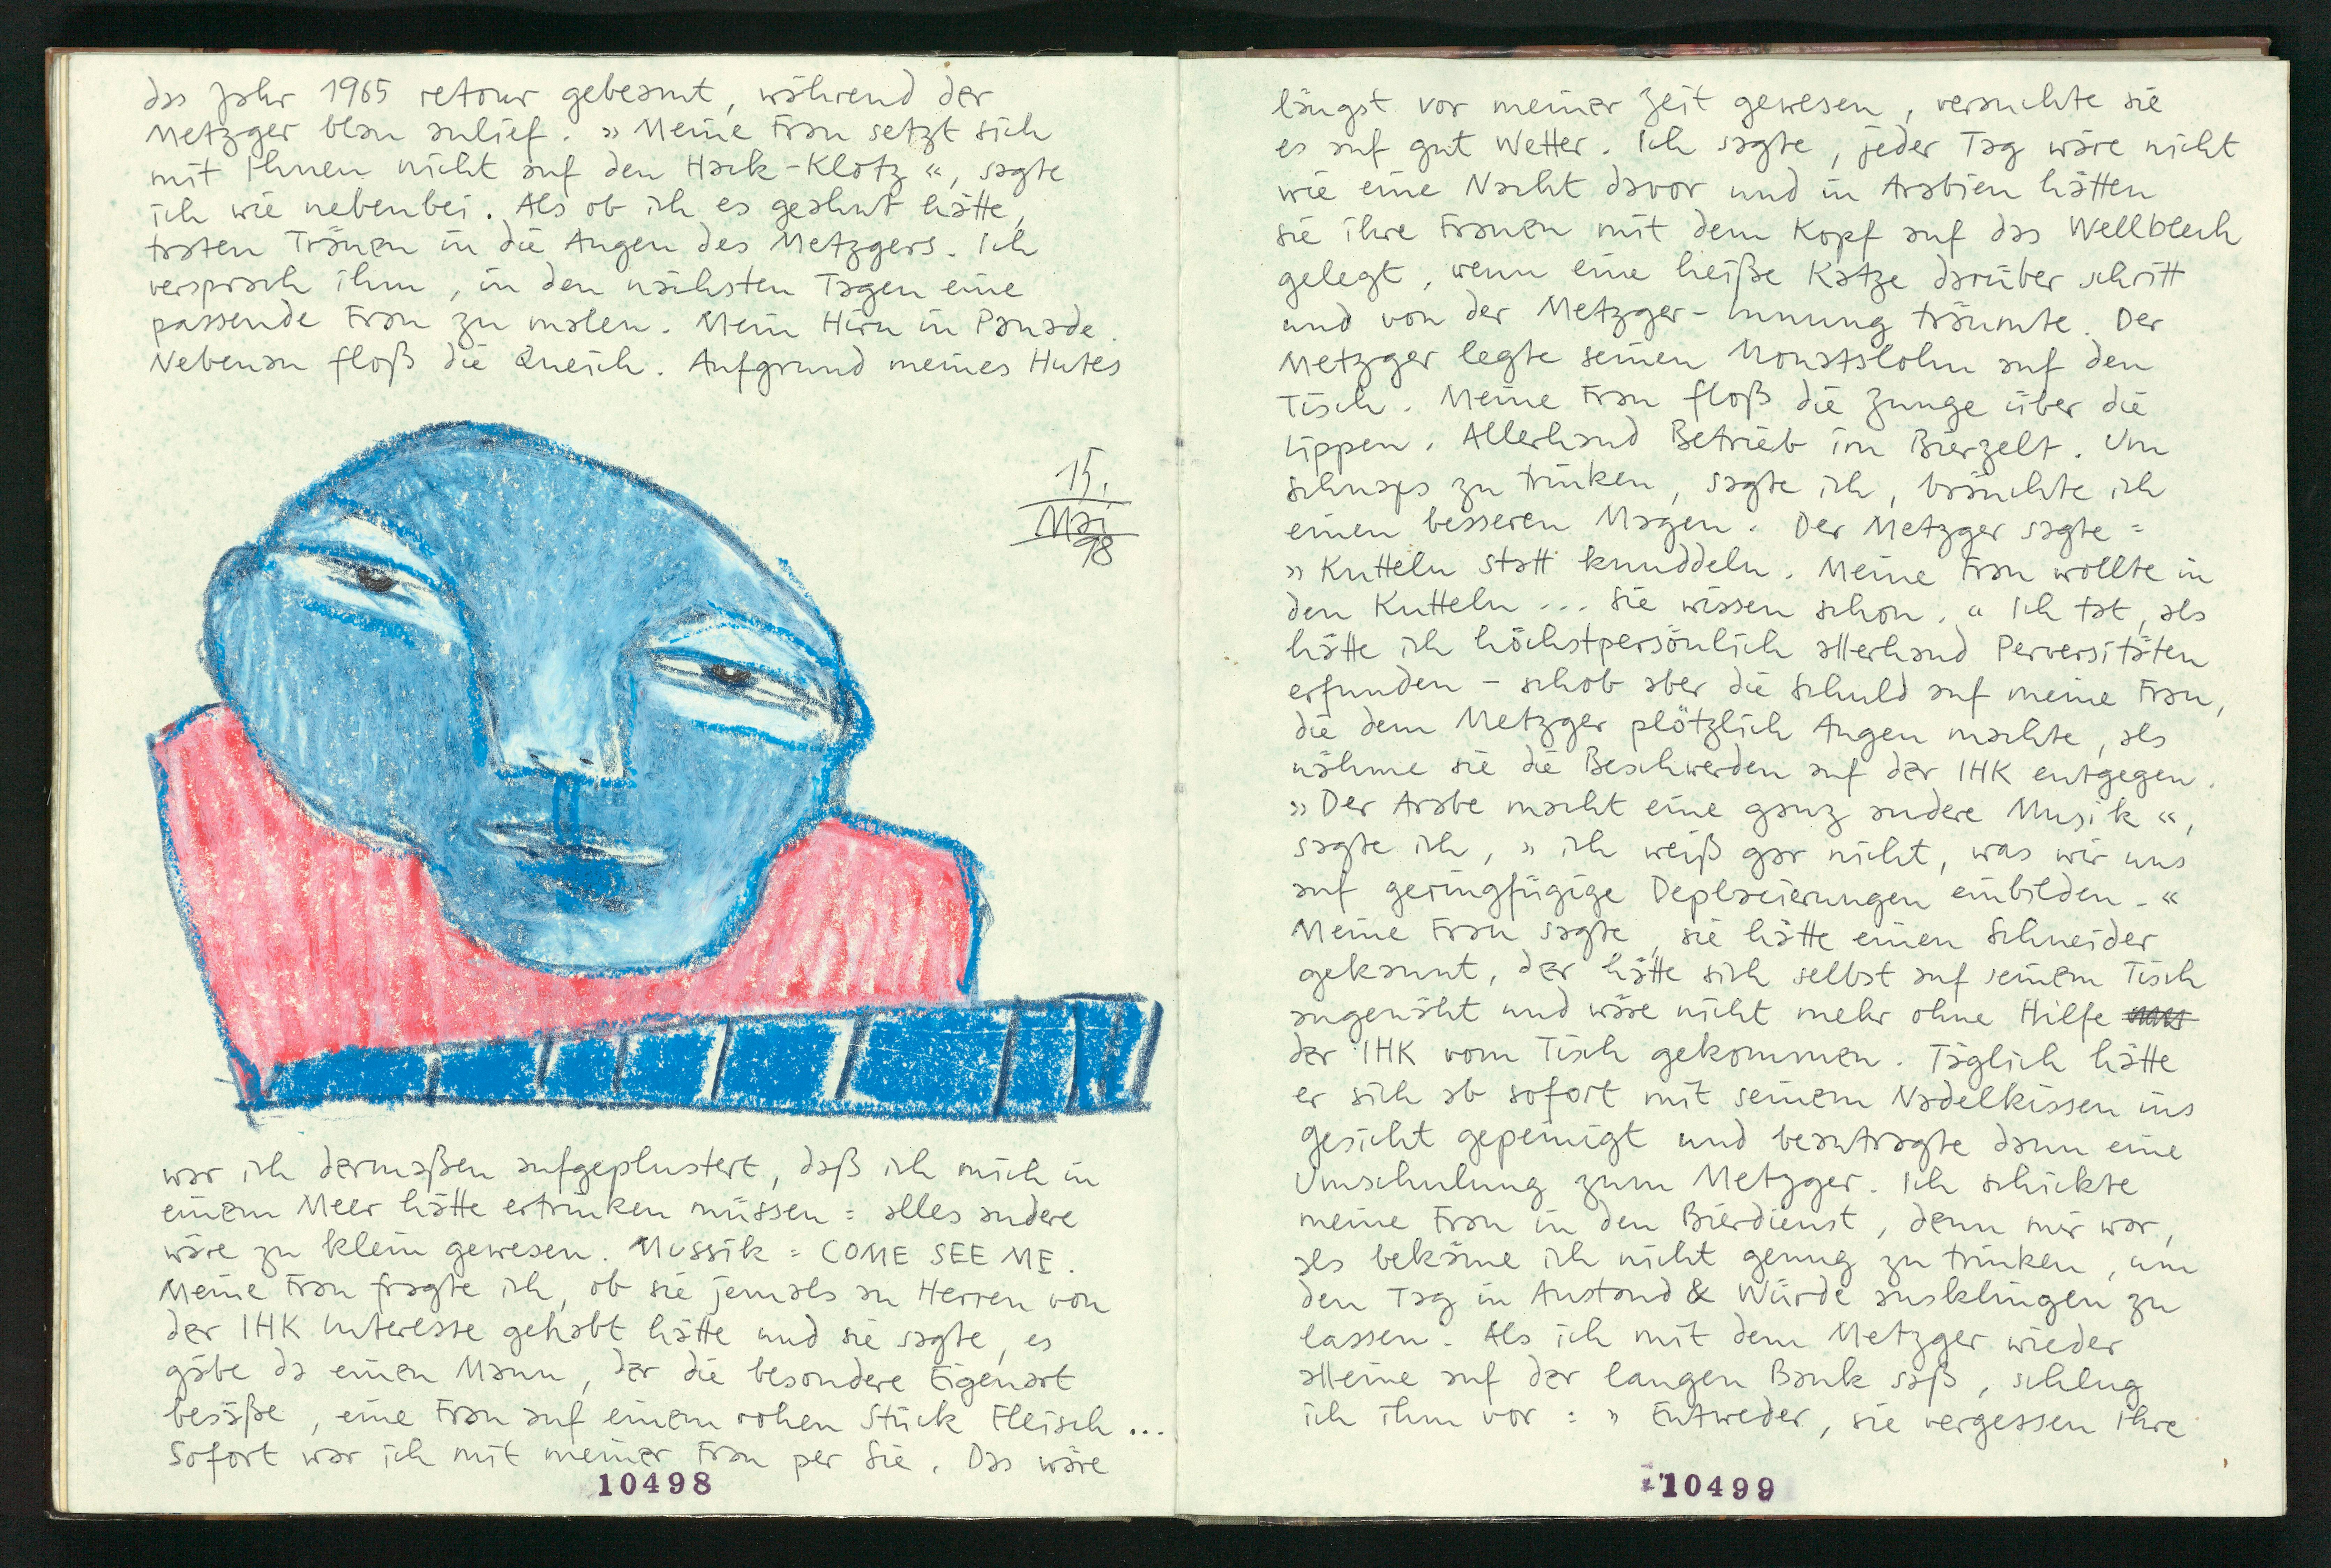 das Jahr 1965 retour gebeamt, während der
Metzger blau anlief. » Meine Frau setzt sich
mit Ihnen nicht auf den Hack-Klotz «, sagte
ich wie nebenbei. Als ob ich es geahnt hätte,
traten Tränen in die Augen des Metzgers. Ich
versprach ihm, in den nächsten Tagen eine
passende Frau zu malen. Mein Hirn in Panade.
Nebenan floß die Queich. Aufgrund meines Hutes
15.
Mai
98
war ich dermaßen aufgeplustert, daß ich mich in
einem Meer hätte ertrinken müssen = alles andere
wäre zu klein gewesen. Mussik = COME SEE ME.
Meine Frau fragte ich, ob sie jemals an Herren von
der IHK Interesse gehabt hätte und sie sagte, es
gäbe da einen Mann, der die besondere Eigenart
besäße, eine Frau auf einem rohen Stück Fleisch ...
Sofort war ich mit meiner Frau per Sie. Das wäre
10498
längst vor meiner Zeit gewesen, versuchte sie
es auf gut Wetter. Ich sagte, jeder Tag wäre nicht
wie eine Nacht davor und in Arabien hätten
sie ihre Frauen mit dem Kopf auf das Wellblech
gelegt, wenn eine heiße Katze darüber schritt
und von der Metzger-Innung träumte. Der
Metzger legte seinen Monatslohn auf den
Tisch. Meine Frau floß die Zunge über die
Lippen. Allerhand Betrieb im Bierzelt. Um
Schnaps zu trinken, sagte ich, bräuchte ich
einen besseren Magen. Der Metzger sagte =
» Kutteln statt knuddeln. Meine Frau wollte in
den Kutteln ... Sie wissen schon. « Ich tat, als
hätte ich höchstpersönlich allerhand Perversitäten
erfunden - schob aber die Schuld auf meine Frau,
die dem Metzger plötzlich Augen machte, als
nähme sie die Beschwerden auf der IHK entgegen.
» Der Arabe macht eine ganz andere Musik «,
sagte ich, » ich weiß gar nicht, was wir uns
auf geringfügige Deplacierungen einbilden. «
Meine Frau sagte, sie hätte einen Schneider
gekannt, der hätte sich selbst auf seinem Tisch
angenäht und wäre nicht mehr ohne Hilfe
der IHK vom Tisch gekommen. Täglich hätte
er sich ab sofort mit seinem Nadelkissen ins
Gesicht gepeinigt und beantragte dann eine
Umschulung zum Metzger. Ich schickte
meine Frau in den Bierdienst, denn mir war,
als bekäme ich nicht genug zu trinken, um
den Tag in Anstand & Würde ausklingen zu
lassen. Als ich mit dem Metzger wieder
alleine auf der langen Bank saß, schlug
ich ihm vor : » Entweder, sie vergessen Ihre
10499